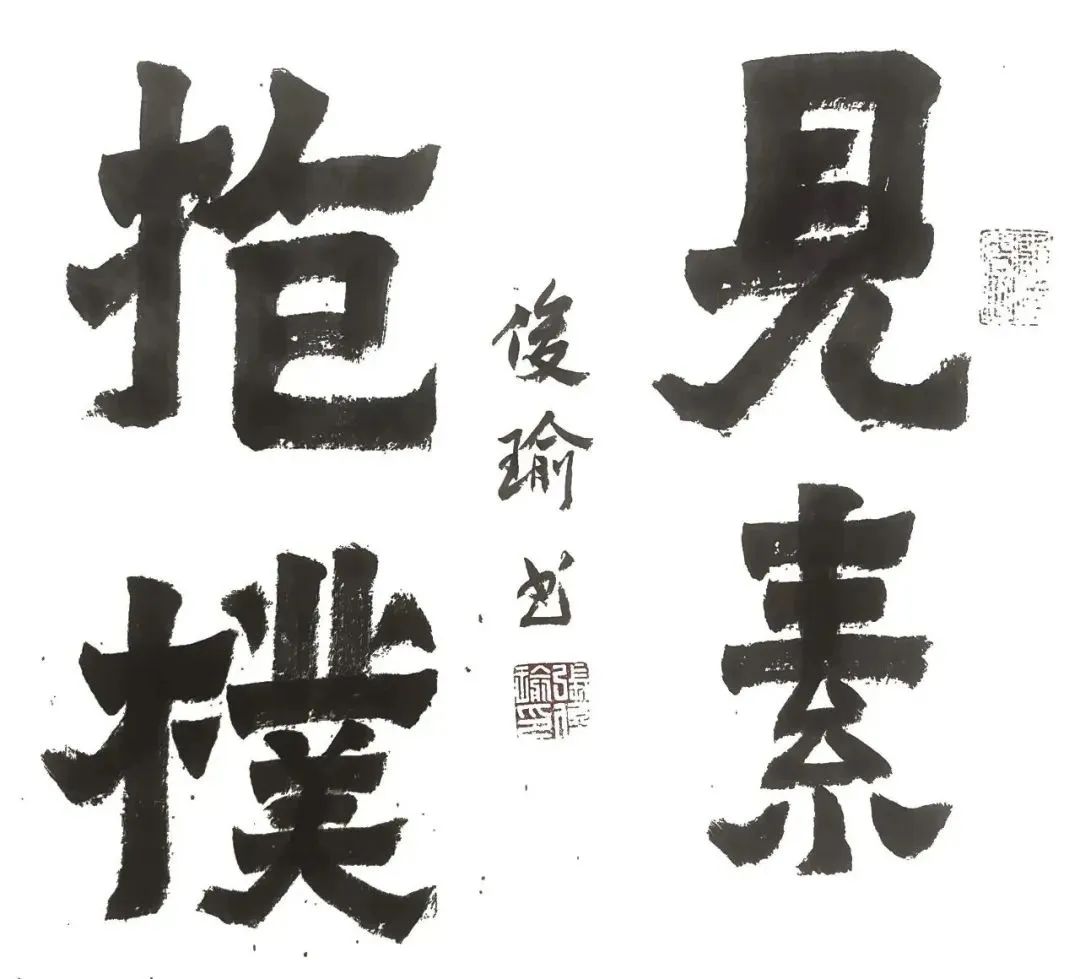 見素
抱樸
俊瑜书
張俊
瑜印